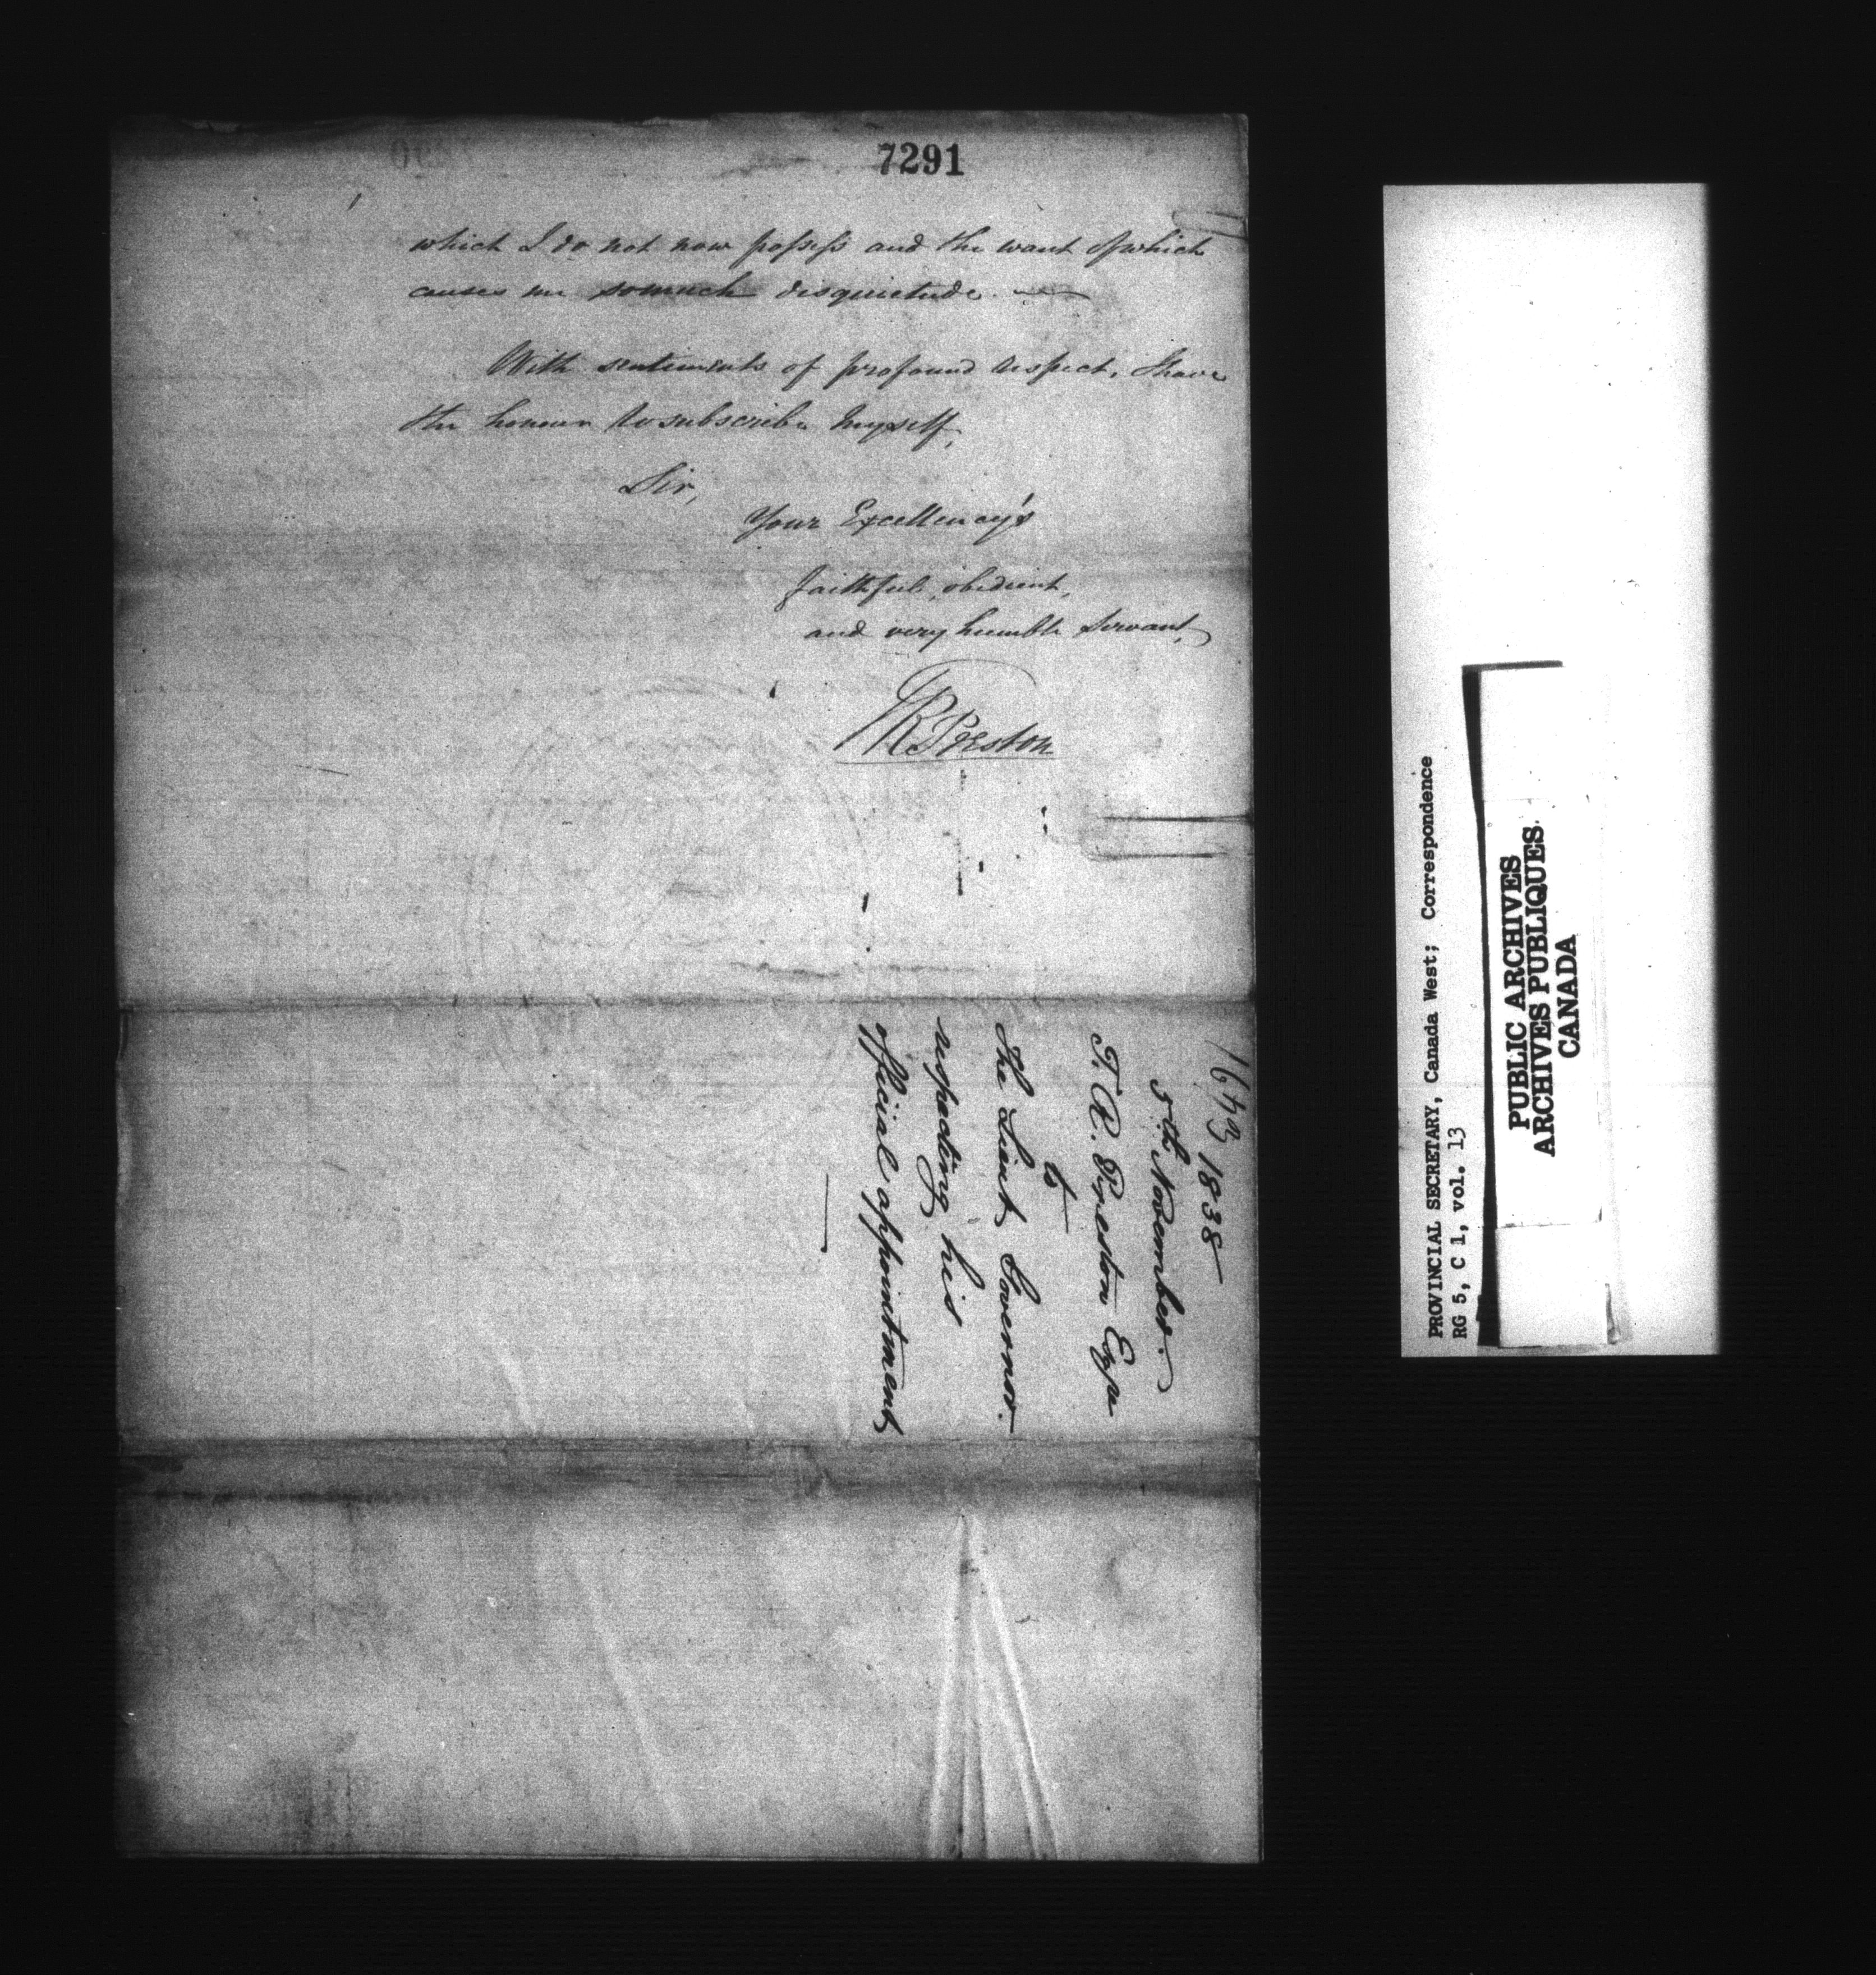 7291
which I do not now possess and the want of which
causes me so much disquietude. —
With sentiments of profound respect, I have
the honour to subscribe myself,
Sir,
Your Excellency's
faithful, obedient,
and very humble servant,
TR Preston
1643 1838
5th November.
T. R. Preston Esqr
to
The Lieut. Governor.
respecting his
official appointment
PROVINCIAL SECRETARY, Canada West; Correspondence
RG 5, C 1, vol. 13
PUBLIC ARCHIVES
ARCHIVES PUBLIQUES
CANADA